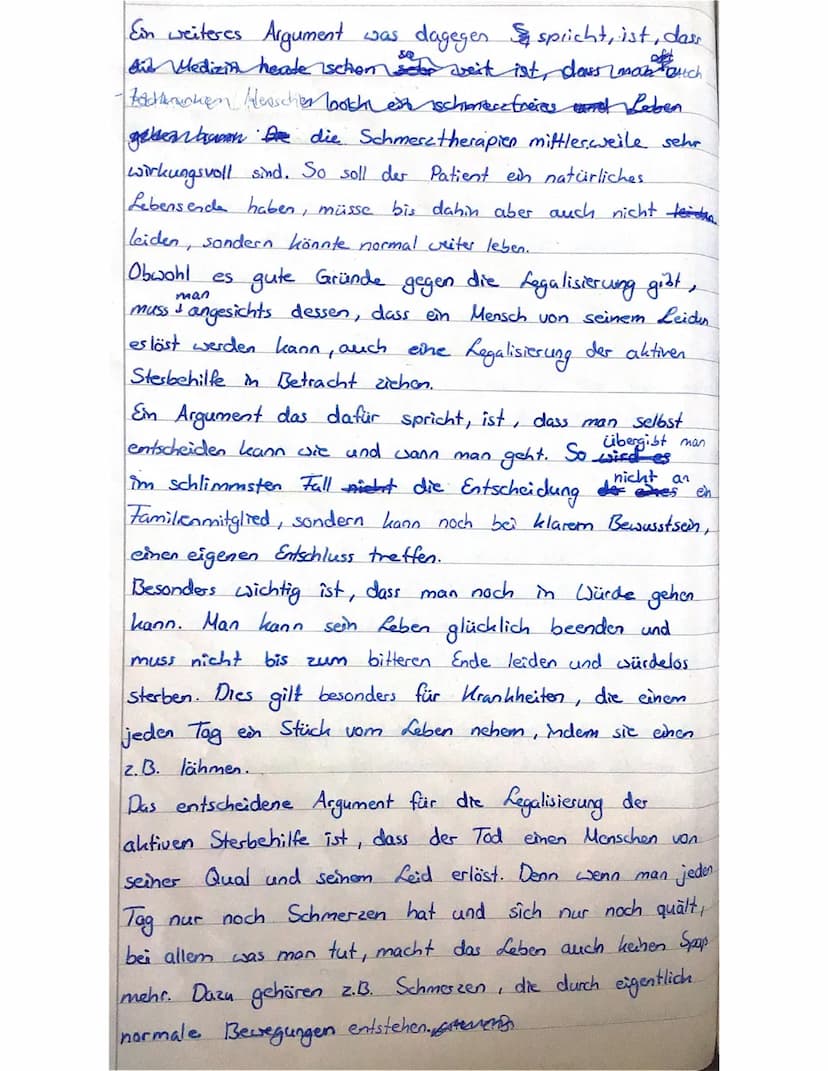 Ein weiteres Argument was dagegen spricht, ist, dass
die Medizin heute schon so weit ist, dass man oft auch
todkranken Menschen noch ein schmerzfreies und Leben
geben kann die Schmerztherapien mittlerweile sehr
wirkungsvoll sind. So soll der Patient ein natürliches
Lebensende haben, müsse bis dahin aber auch nicht
leiden, sondern könnte normal weiter leben.
Obwohl es gute Gründe gegen die Legalisierung gibt,
muss man angesichts dessen, dass ein Mensch von seinem Leiden
erlöst werden kann, auch eine Legalisierung der aktiven
Sterbehilfe in Betracht ziehen.
Ein Argument das dafür spricht, ist, dass man selbst
entscheiden kann wie und wann man geht. So wird es übergibt man
im schlimmsten Fall nicht die Entscheidung nicht an ein
Familienmitglied, sondern kann noch bei klarem Bewusstsein,
einen eigenen Entschluss treffen.
Besonders wichtig ist, dass man noch in Würde gehen
kann. Man kann sein Leben glücklich beenden und
muss nicht bis zum bitteren Ende leiden und würdelos
sterben. Dies gilt besonders für Krankheiten, die einem
jeden Tag ein Stück vom Leben nehem, indem sie einen
z.B. lähmen.
Das entscheidene Argument für die Legalisierung der
aktiven Sterbehilfe ist, dass der Tod einen Menschen von
seiner Qual und seinem Leid erlöst. Denn wenn man jeden
Tag nur noch Schmerzen hat und sich nur noch quält,
bei allem was man tut, macht das Leben auch keinen Spaß
mehr. Dazu gehören z.B. Schmerzen, die durch eigentlich
normale Bewegungen entstehen.